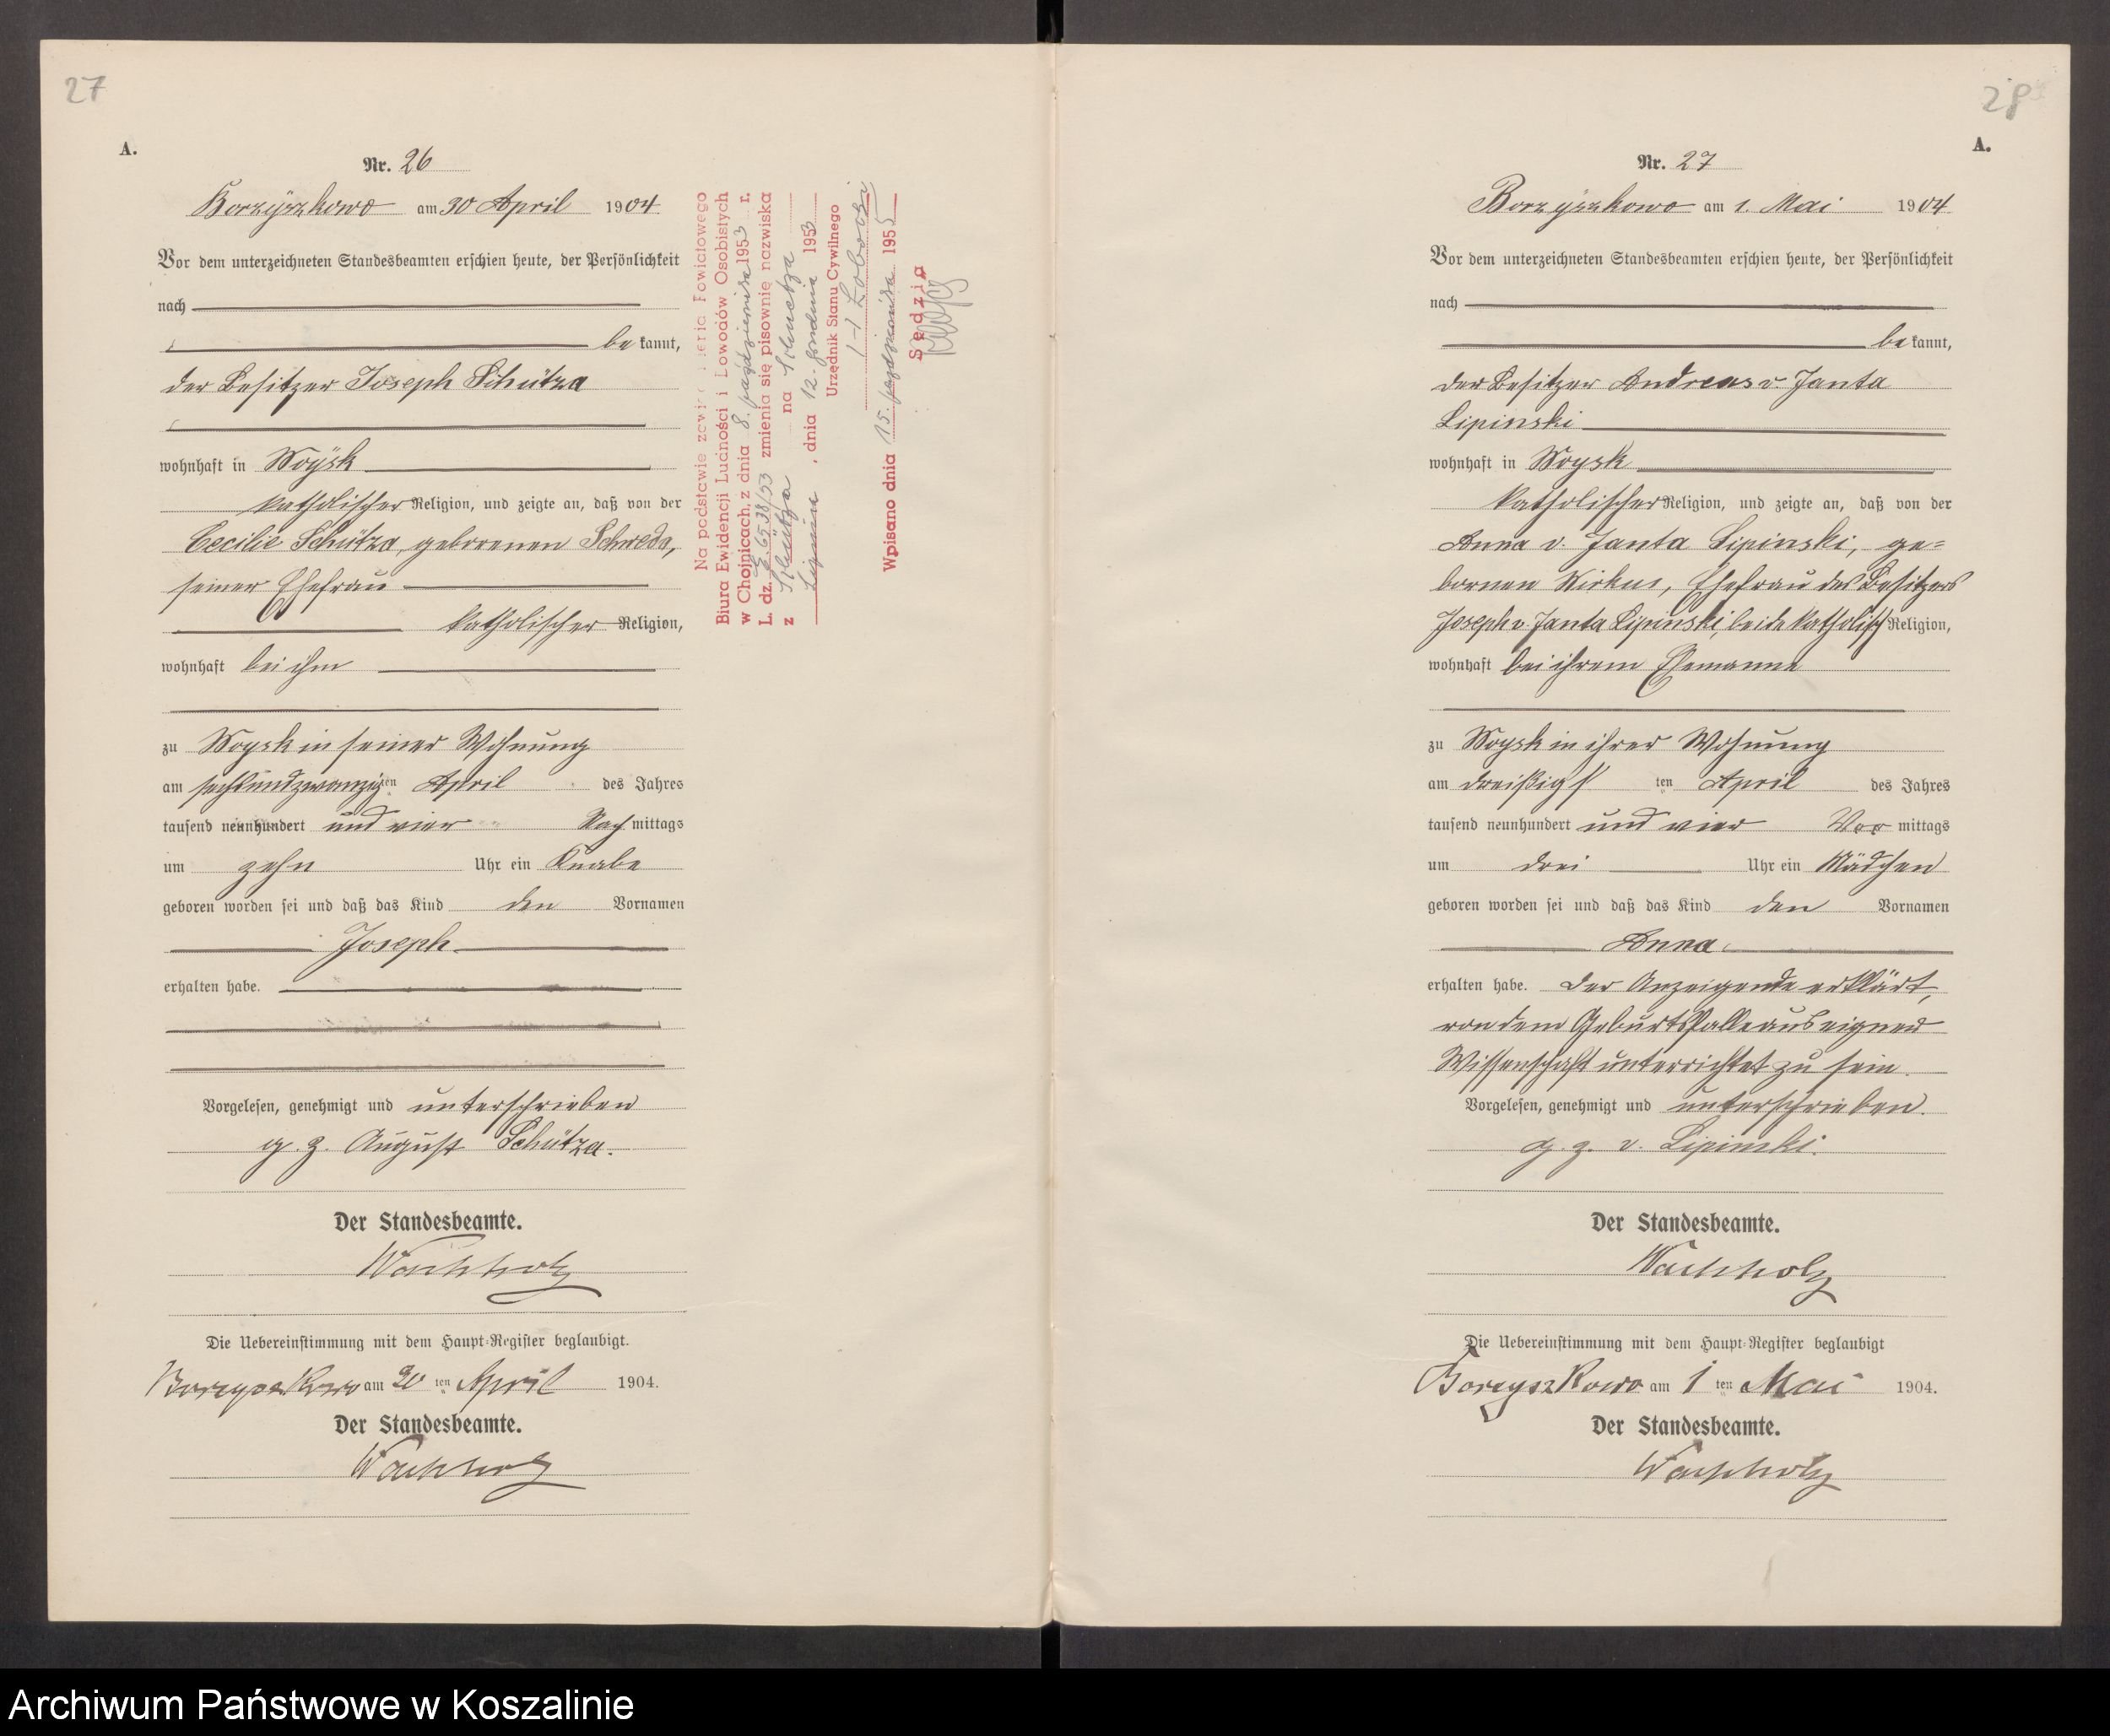 27
A.
Nr. 26
Borzyszkowo am 30 April 1904
Vor dem unterzeichneten Standesbeamten erschien heute, der Persönlichkeit
nach
be kannt,
der Besitzer Joseph Schütza
wohnhaft in Woysk
katholischer Religion, und zeigte an, daß von der
Cecilie Schütza, geborenen Schreda,
seiner Ehefrau
katholischer Religion,
wohnhaft bei ihm
zu Woysk in seiner Wohnung
am sechsundzwanzigsten April des Jahres
tausend neunhundert und vier Nach mittags
um zehn Uhr ein Knabe
geboren worden sei und daß das Kind den Vornamen
Joseph
erhalten habe.
Vorgelesen, genehmigt und unterschrieben
g. z. August Schütza.
Der Standesbeamte.
Wachholz
Die Uebereinstimmung mit dem Haupt-Register beglaubigt.
Borzyszkowo am 30 ten April 1904.
Der Standesbeamte.
Wachholz
Na podstawie Powiatowego
Biura Ewidencji Ludności i Dowodów Osobistych
w Chojnicach, z dnia 8. października 1953 r.
L. dz. 6538/53 zmienia się pisownię nazwiska
z Schütza na Schucza
Lipnica, dnia 12. grudnia 1953
Urzędnik Stanu Cywilnego
Wpisano dnia 15. października 1955
Sędzia
28
A.
Nr. 27
Borzyszkowo am 1. Mai 1904
Vor dem unterzeichneten Standesbeamten erschien heute, der Persönlichkeit
nach
be kannt,
der Besitzer Andreas v Janta
Lipinski
wohnhaft in Woysk
katholischer Religion, und zeigte an, daß von der
Anna v. Janta Lipinski, ge=
bornen Wirkus, Ehefrau des Besitzers
Joseph v. Janta Lipinski, beide katholisch Religion,
wohnhaft bei ihrem Ehemanne
zu Woysk in ihrer Wohnung
am dreißigs ten April des Jahres
tausend neunhundert und vier Vor mittags
um drei Uhr ein Mädchen
geboren worden sei und daß das Kind den Vornamen
Anna
erhalten habe. Der Anzeigende erklärt,
von dem Geburtsfalle aus eigner
Wissenschaft unterrichtet zu sein.
Vorgelesen, genehmigt und unterschrieben.
g. z. v. Lipinski.
Der Standesbeamte.
Wachholz
Die Uebereinstimmung mit dem Haupt-Register beglaubigt
Borzyszkowo am 1 ten Mai 1904.
Der Standesbeamte.
Wachholz
Archiwum Państwowe w Koszalinie